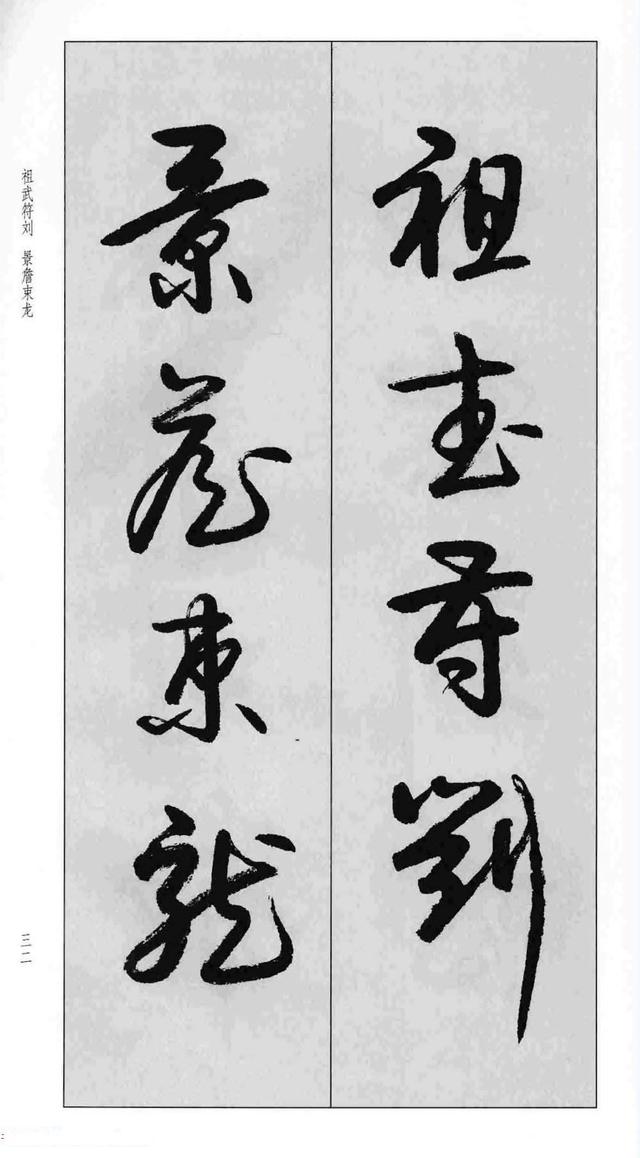 祖武符劉
景詹束龍
祖武符刘 景詹束龙
三二